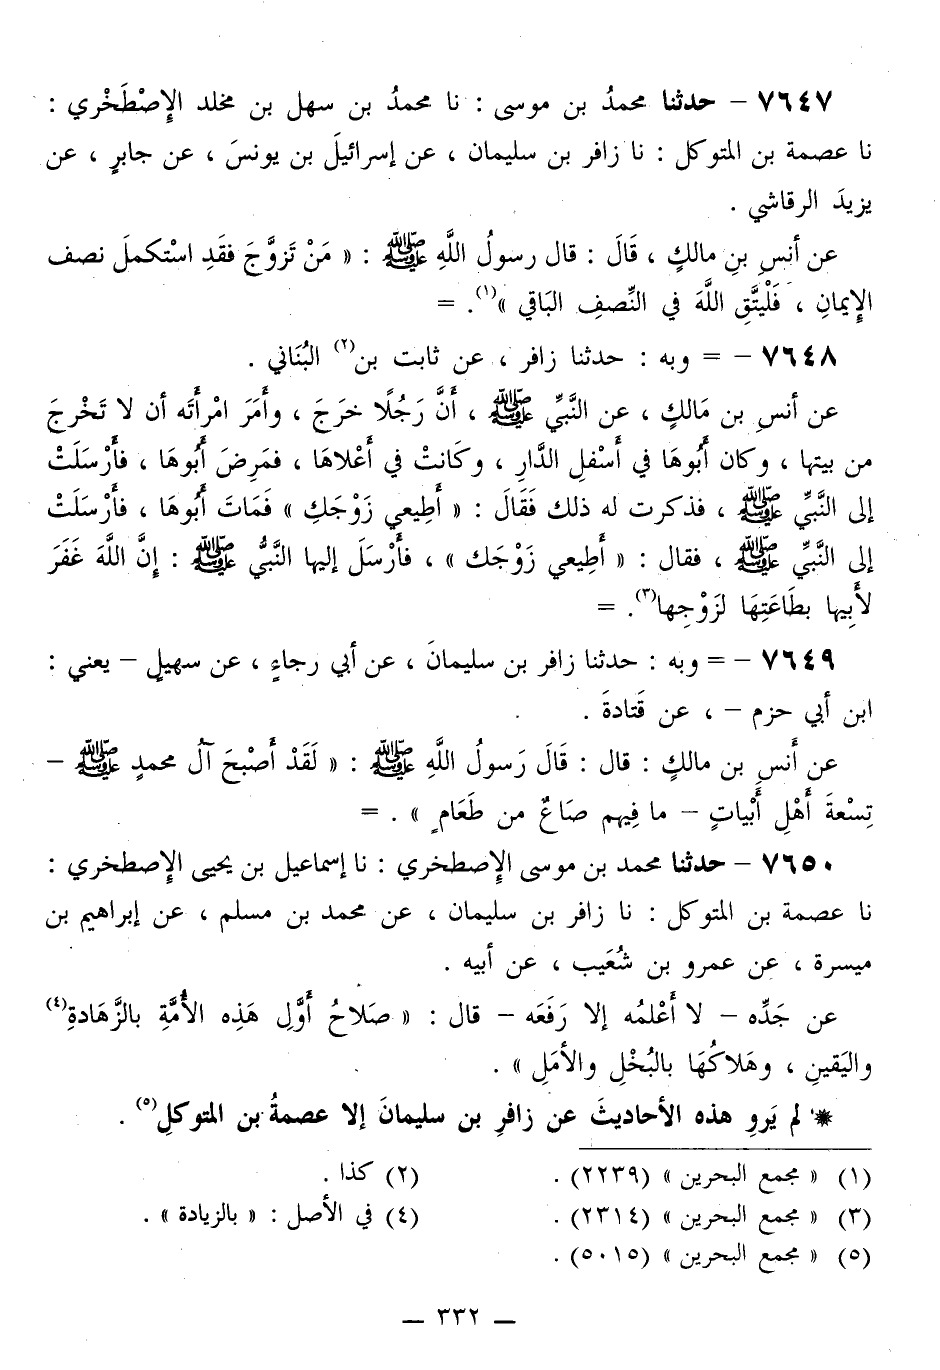 ٧٦٤٧ – حدثنا محمدُ بن موسى : نا محمدُ بن سهل بن مخلد الإِصْطَخْري :
نا عصمة بن المتوكل : نا زافر بن سليمان ، عن إسرائيلَ بن يونسَ ، عن جابرٍ ، عن
يزيدَ الرقاشي .
عن أنسِ بنِ مالكٍ ، قَالَ : قال رسولُ اللَّهِ ﷺ : « مَنْ تَزوَّجَ فقَدِ اسْتكملَ نصف
الإِيمانِ ، فَلْيتَّقِ اللَّهَ في النِّصفِ البَاقي »(١). =
٧٦٤٨ – = وبه : حدثنا زافر ، عن ثابت بن(٢) البُنَاني .
عن أنسِ بن مَالكٍ ، عن النَّبيِّ ﷺ ، أَنَّ رَجُلًا خرَجَ ، وأمَرَ امْرأتَه أن لا تَخْرجَ
من بيتها ، وكان أَبُوهَا في أسْفلِ الدَّارِ ، وكَانتْ في أَعْلاهَا ، فمَرِضَ أَبُوهَا ، فأَرْسَلَتْ
إلى النَّبيِّ ﷺ ، فذكرت له ذلك فَقَالَ : « أَطِيعي زَوْجَكِ » فَمَاتَ أَبُوهَا ، فأَرْسَلَتْ
إلى النَّبيِّ ﷺ ، فقال : « أَطِيعي زَوْجَك » ، فأَرْسَلَ إليها النَّبيُّ ﷺ : إِنَّ اللَّهَ غَفَرَ
لأَبِيها بطَاعَتِهَا لزَوْجِها(٣). =
٧٦٤٩ – = وبه : حدثنا زافر بن سليمانَ ، عن أبي رجاءٍ ، عن سهيلٍ – يعني :
ابن أبي حزم – ، عن قَتادةَ .
عن أَنسِ بن مالكٍ : قال : قَالَ رَسولُ اللَّهِ ﷺ : « لَقَدْ أَصْبحَ آلُ محمدٍ ﷺ –
تِسْعةَ أَهْلِ أَبْياتٍ – ما فِيهم صَاعٌ من طَعَامٍ » . =
٧٦٥٠ – حدثنا محمد بن موسى الإِصطخري : نا إسماعيل بن يحيى الإِصطخري :
نا عصمة بن المتوكل : نا زافر بن سليمان ، عن محمد بن مسلم ، عن إبراهيم بن
ميسرة ، عن عمرو بن شُعَيب ، عن أبيه .
عن جَدِّه – لا أَعْلمُه إلا رَفَعَه – قال : « صَلاحُ أَوَّلِ هَذِه الأُمَّةِ بالزَّهَادةِ(٤)
واليَقينِ ، وهَلاكُهَا بالبُخْلِ والأَمَلِ » .
* لم يَروِ هذه الأحاديثَ عن زافرِ بن سليمانَ إلا عصمةُ بن المتوكلِ(٥) .
(١) « مجمع البحرين » (٢٢٣٩) .
(٢) كذا .
(٣) « مجمع البحرين » (٢٣١٤) .
(٤) في الأصل : « بالزيادة » .
(٥) « مجمع البحرين » (٥٠١٥) .
— ٣٣٢ —